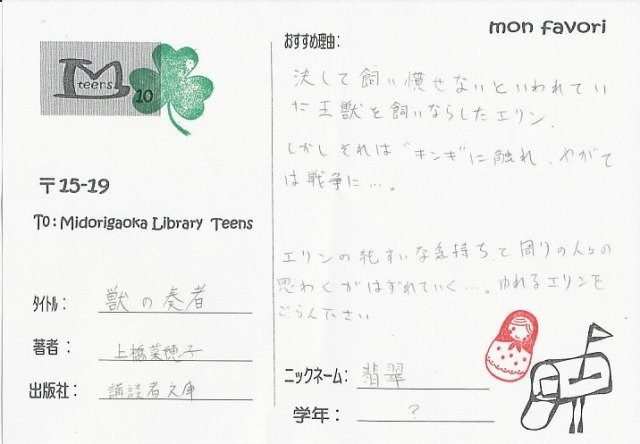 mon favori
TM
teens
10
〒15-19
To: Midorigaoka Library Teens
タイトル: 獣の奏者
著者: 上橋菜穂子
出版社: 講談者文庫
おすすめ理由:
決して飼い慣せないといわれてい
た王獣を飼いならしたエリン.
しかしそれは"キンギ"に触れ、やがて
は戦争に…。
エリンの純すいな気持ちと周りの人々の
思わくがはずれていく…。ゆれるエリンを
ごらん下さい
ニックネーム: 翡翠
学年: ?